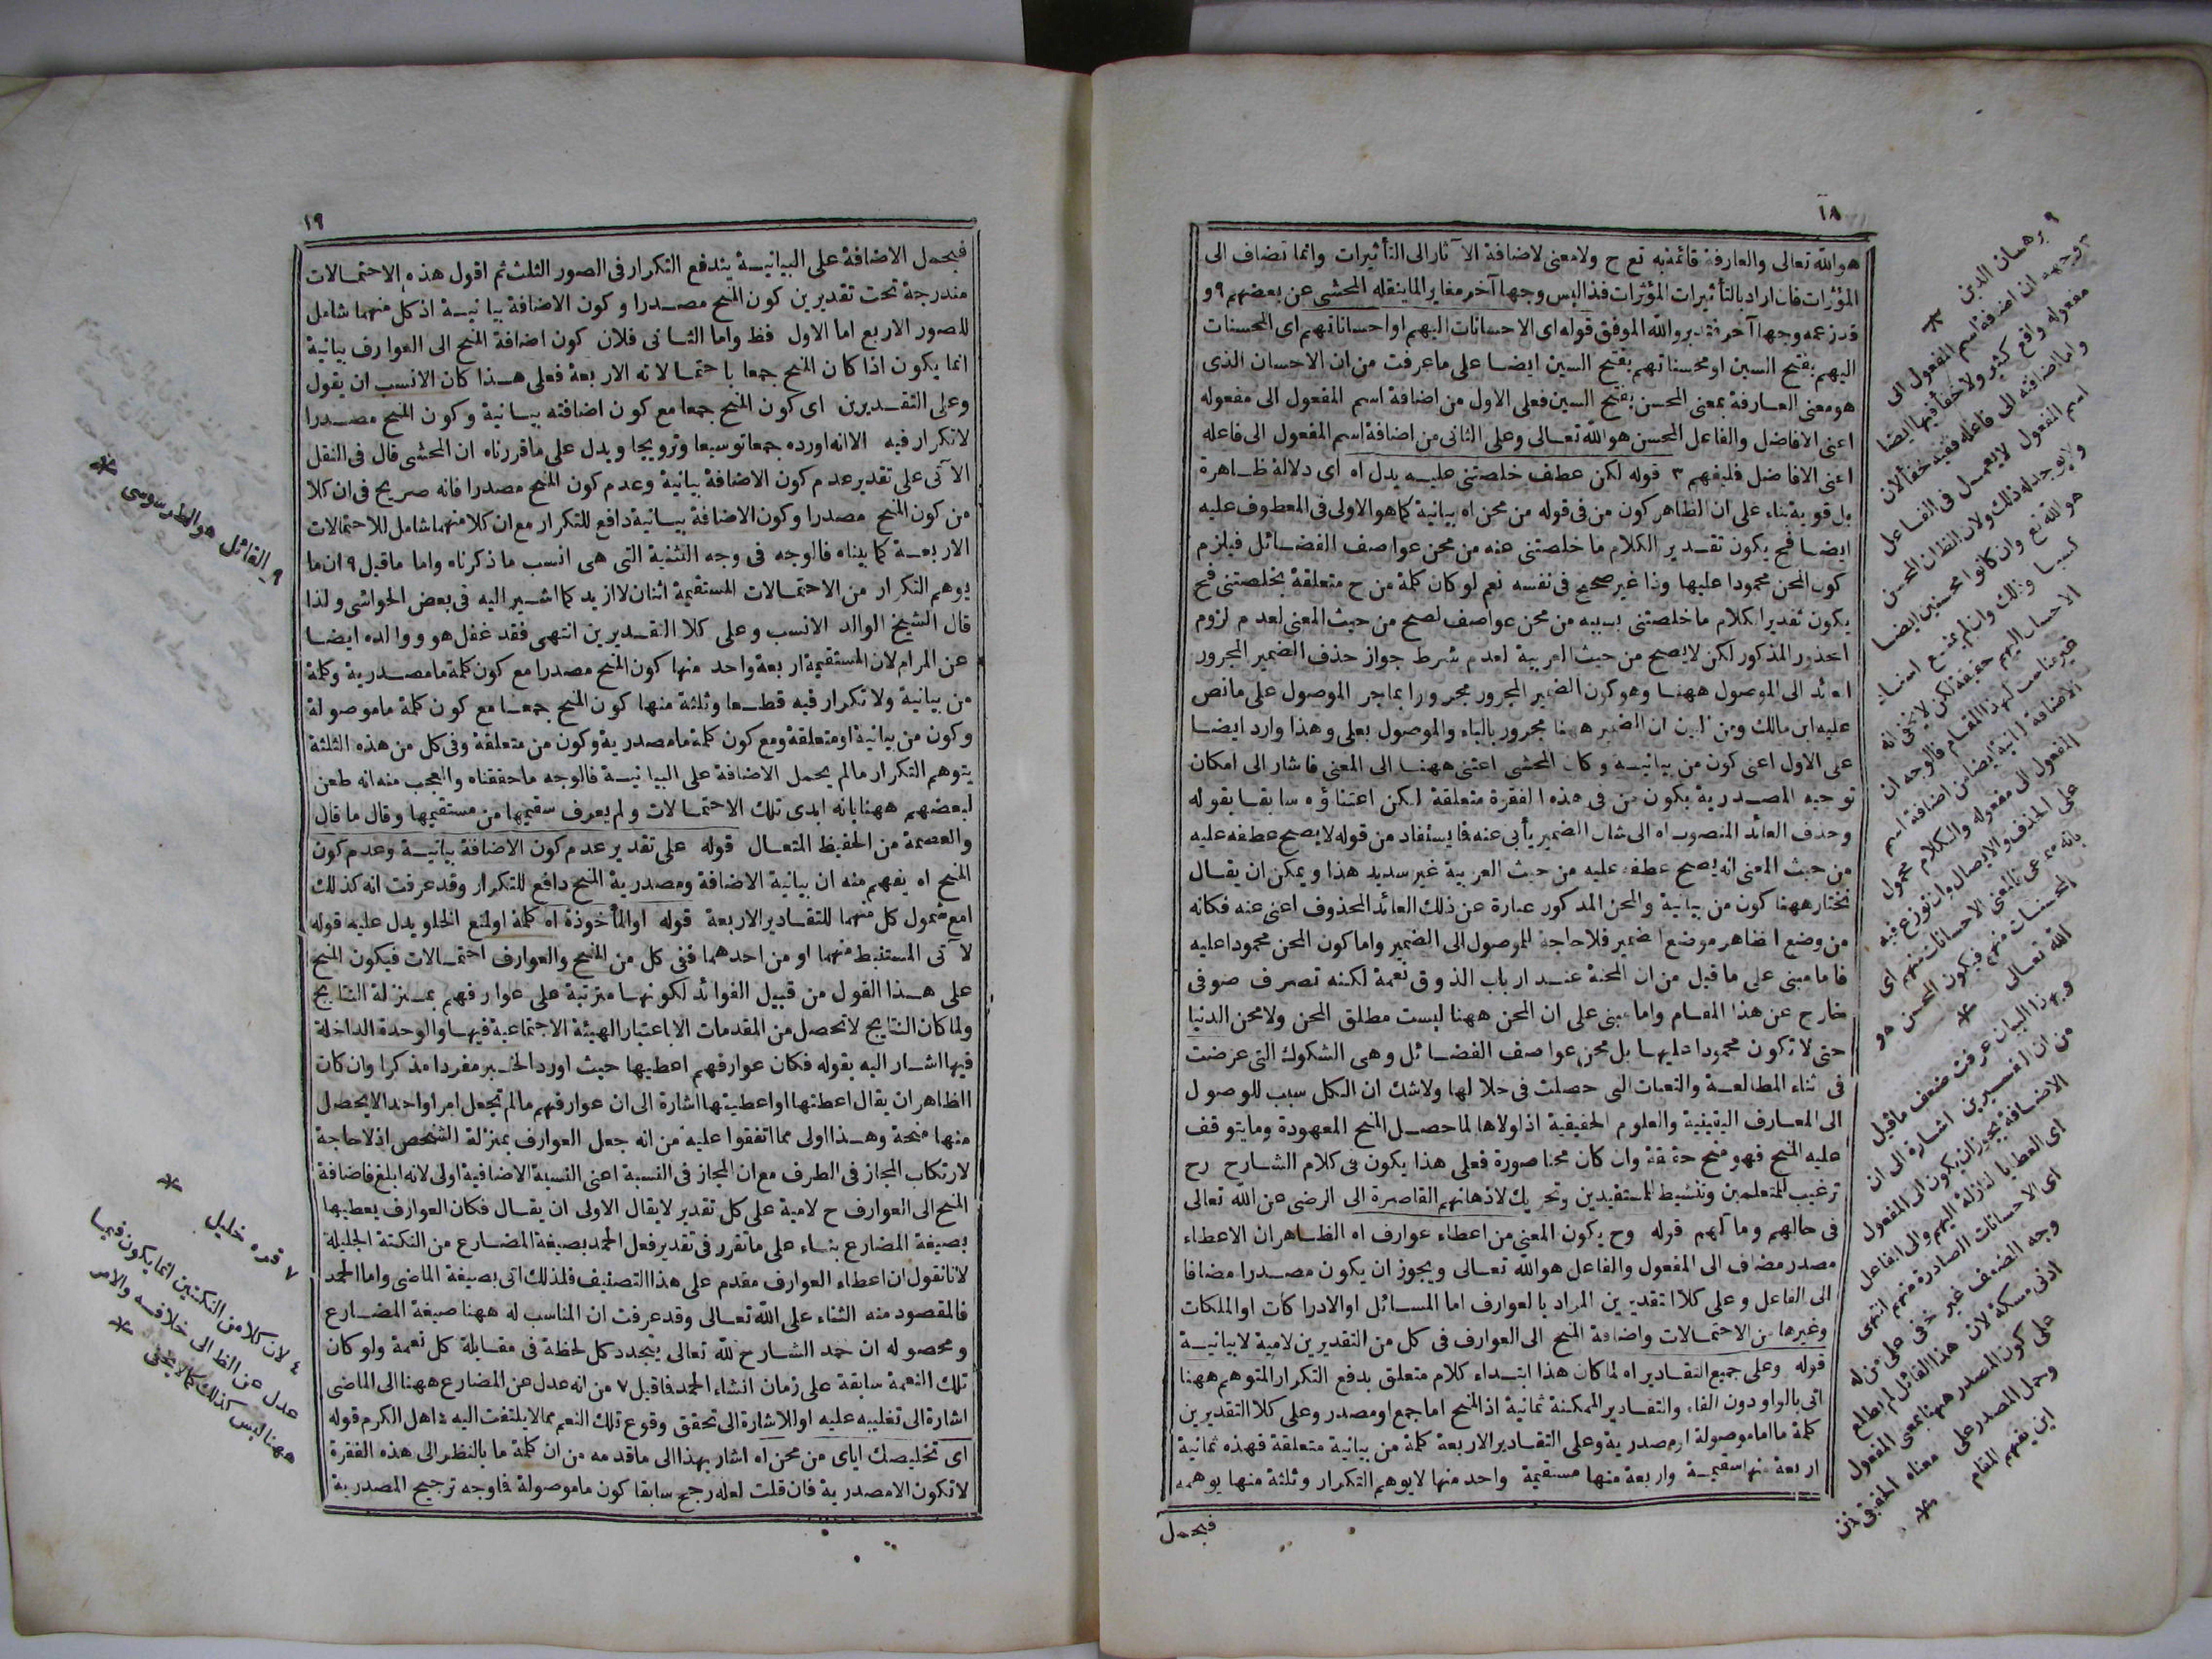 ١٨
هو الله تعالى والعارفة قائمة به تع ح ولا معنى لاضافة الآثار الى التأثيرات وانما تضاف الى
المؤثرات فان اراد بالتأثيرات المؤثرات فذا ليس وجها آخر مغاير لما ينقله المحشى عن بعضهم ٩ و
قد زعمه وجها آخر فتدبر والله الموفق قوله اى الاحسانات اليهم او احساناتهم اى المحسنات
اليهم بفتح السين او محسناتهم بفتح السين ايضا على ما عرفت من ان الاحسان الذى
هو معنى العارفة بمعنى المحسن بفتح السين فعلى الاول من اضافة اسم المفعول الى مفعوله
اعنى الافاضل والفاعل المحسن هو الله تعالى وعلى الثانى من اضافة اسم المفعول الى فاعله
اعنى الافاضل فليفهم ٣ قوله لكن عطف خلصتنى عليه يدل اه اى دلالة ظاهرة
بل قوية بناء على ان الظاهر كون من فى قوله من محن اه بيانية كما هو الاولى فى المعطوف عليه
ايضا فح يكون تقدير الكلام ما خلصتنى عنه من محن عواصف الفضائل فيلزم
كون المحن محمودا عليها وذا غير صحيح فى نفسه نعم لو كان كلمة من ح متعلقة بخلصتنى فح
يكون تقدير الكلام ما خلصتنى بسببه من محن عواصف لصح من حيث المعنى لعدم لزوم
المحذور المذكور لكن لا يصح من حيث العربية لعدم شرط جواز حذف الضمير المجرور
العائد الى الموصول ههنا وهو كون الضمير المجرور مجرورا بما جر الموصول على ما نص
عليه ابن مالك ومن البين ان الضمير ههنا مجرور بالباء والموصول بعلى وهذا وارد ايضا
على الاول اعنى كون من بيانية وكان المحشى اعتنى ههنا الى المعنى فاشار الى امكان
توجيه المصدرية بكون من فى هذه الفقرة متعلقة لكن اعتناؤه سابقا بقوله
وحذف العائد المنصوب اه الى شان الضمير يأبى عنه فما يستفاد من قوله لا يصح عطفه عليه
من حيث المعنى انه يصح عطفه عليه من حيث العربية غير سديد هذا ويمكن ان يقال
نختار ههنا كون من بيانية والمحن المذكور عبارة عن ذلك العائد المحذوف اعنى عنه فكانه
من وضع الظاهر موضع الضمير فلا حاجة للموصول الى الضمير واما كون المحن محمودا عليه
فاما مبنى على ما قيل من ان المحنة عند ارباب الذوق نعمة لكنه تصرف صوفى
خارج عن هذا المقام واما مبنى على ان المحن ههنا ليست مطلق المحن ولا محن الدنيا
حتى لا تكون محمودا عليها بل محن عواصف الفضائل وهى الشكوك التى عرضت
فى اثناء المطالعة والتعبات التى حصلت فى خلالها ولا شك ان الكل سبب للوصول
الى المعارف اليقينية والعلوم الحقيقية اذ لولاها لما حصل المنح المعهودة وما يتوقف
عليه المنح فهو منح حقيقة وان كان محنا صورة فعلى هذا يكون فى كلام الشارح رح
ترغيب للمتعلمين وتنشيط للمستفيدين وتحريك لاذهانهم القاصرة الى الرضى عن الله تعالى
فى حالهم ومآلهم قوله وح يكون المعنى من اعطاء عوارف اه الظاهر ان الاعطاء
مصدر مضاف الى المفعول والفاعل هو الله تعالى ويجوز ان يكون مصدرا مضافا
الى الفاعل وعلى كلا التقديرين المراد بالعوارف اما المسائل او الادراكات او الملكات
وغيرها من الاحتمالات واضافة المنح الى العوارف فى كل من التقديرين لامية لا بيانية
قوله وعلى جميع التقادير اه لما كان هذا ابتداء كلام متعلق بدفع التكرار المتوهم ههنا
اتى بالواو دون الفاء والتقادير الممكنة ثمانية اذ المنح اما جمع او مصدر وعلى كلا التقديرين
كلمة ما اما موصولة او مصدرية وعلى التقادير الاربعة كلمة من بيانية متعلقة فهذه ثمانية
اربعة منها سقيمة واربعة منها مستقيمة واحد منها لا يوهم التكرار وثلثة منها يوهمه
فبحمل
٩ برهان الدين
٣ وجهه ان اضافة اسم المفعول الى
مفعوله واقع كثير ولا خفأ فيها ايضا
واما اضافته الى فاعله ففيه خفأ لان
اسم المفعول لا يعمل فى الفاعل
ولا يوجد له ذلك ولان الظ ان المحسن
هو الله تع وان كانوا محسنين ايضا
كسبا وذلك وان لم يمتنع اسناد
الاحسان اليهم حقيقة لكن لا يخفى انه
غير مناسب لهذا المقام فالوجه ان
الاضافة الثانية ايضا من اضافة اسم
المفعول الى مفعوله والكلام محمول
على الحذف والايصال وان نوزع فيه
بانه سماعى فالمعنى الاحسانات منهم اى
المحسنات منهم فيكون المحسن هو
الله تعالى
وبهذا البيان عرفت ضعف ما قيل
من ان التفسيرين اشارة الى ان
الاضافة يجوز ان يكون الى المفعول
اى العطايا النازلة اليهم والى الفاعل
اى الاحسانات الصادرة منهم انتهى
وجه الضعف غير خفى على من له
ادنى مسكة لان هذا القائل لم يطلع
على كون المصدر ههنا بمعنى المفعول
وحمل المصدر على معناه الحقيقى فمن
اين يفهم المقام
١٩
فبحمل الاضافة على البيانية يندفع التكرار فى الصور الثلث ثم اقول هذه الاحتمالات
مندرجة تحت تقديرين كون المنح مصدرا وكون الاضافة بيانية اذ كل منهما شامل
للصور الاربع اما الاول فظ واما الثانى فلان كون اضافة المنح الى العوارف بيانية
انما يكون اذا كان المنح جمعا باحتمالاته الاربعة فعلى هذا كان الانسب ان يقول
وعلى التقديرين اى كون المنح جمعا مع كون اضافته بيانية وكون المنح مصدرا
لا تكرار فيه الا انه اورده جمعا توسيعا وترويجا ويدل على ما قررناه ان المحشى قال فى النقل
الآتى على تقدير عدم كون الاضافة بيانية وعدم كون المنح مصدرا فانه صريح فى ان كلا
من كون المنح مصدرا وكون الاضافة بيانية دافع للتكرار مع ان كلا منهما شامل للاحتمالات
الاربعة كما بيناه فالوجه فى وجه التثنية التى هى انسب ما ذكرناه واما ما قيل ٩ ان ما
يوهم التكرار من الاحتمالات المستقيمة اثنان لا ازيد كما اشير اليه فى بعض الحواشى ولذا
قال الشيخ الوالد الانسب وعلى كلا التقديرين انتهى فقد غفل هو ووالده ايضا
عن المرام لان المستقيمة اربعة واحد منها كون المنح مصدرا مع كون كلمة ما مصدرية وكلة
من بيانية ولا تكرار فيه قطعا وثلثة منها كون المنح جمعا مع كون كلمة ما موصولة
وكون من بيانية او متعلقة ومع كون كلمة ما مصدرية وكون من متعلقة وفى كل من هذه الثلثة
يتوهم التكرار ما لم يحمل الاضافة على البيانية فالوجه ما حققناه والعجب منه انه طعن
لبعضهم ههنا بانه ابدى تلك الاحتمالات ولم يعرف سقيمها من مستقيمها وقال ما قال
والعصمة من الحفيظ المتعال قوله على تقدير عدم كون الاضافة بيانية وعدم كون
المنح اه يفهم منه ان بيانية الاضافة ومصدرية المنح دافع للتكرار وقد عرفت انه كذلك
مع شمول كل منهما للتقادير الاربعة قوله او المأخوذة اه كلمة او لمنع الخلو يدل عليه قوله
الآتى المستنبط منهما او من احدهما ففى كل من المنح والعوارف احتمالات فيكون المنح
على هذا القول من قبيل الفوائد لكونها مترتبة على عوارفهم بمنزلة النتايج
ولما كان النتايج لا تحصل من المقدمات الا باعتبار الهيئة الاجتماعية فيها والوحدة الداخلة
فيها اشار اليه بقوله فكان عوارفهم اعطيها حيث اورد الخبر مفردا مذكرا وان كان
الظاهر ان يقال اعطتها او اعطيتها اشارة الى ان عوارفهم ما لم تجعل امرا واحدا لا يحصل
منها منحة وهذا اولى مما اتفقوا عليه من انه جعل العوارف بمنزلة الشخص اذ لا حاجة
لارتكاب المجاز فى الطرف مع ان المجاز فى النسبة اعنى النسبة الاضافية اولى لانه ابلغ فاضافة
المنح الى العوارف ح لامية على كل تقدير لا يقال الاولى ان يقال فكان العوارف يعطيها
بصيغة المضارع بناء على ما تقرر فى تقدير فعل الحمد بصيغة المضارع من النكتة الجليلة
لانا نقول ان اعطاء العوارف مقدم على هذا التصنيف فلذلك اتى بصيغة الماضى واما الحمد
فالمقصود منه الثناء على الله تعالى وقد عرفت ان المناسب له ههنا صيغة المضارع
ومحصوله ان حمد الشارح لله تعالى يتجدد كل لحظة فى مقابلة كل نعمة ولو كان
تلك النعمة سابقة على زمان انشاء الحمد فما قيل ٧ من انه عدل عن المضارع ههنا الى الماضى
اشارة الى تغليبه عليه او للاشارة الى تحقق وقوع تلك النعم مما لا يلتفت اليه ٤ اهل الكرم قوله
اى تخليصك اياى من محن اه اشار بهذا الى ما قدمه من ان كلمة ما بالنظر الى هذه الفقرة
لا تكون الا مصدرية فان قلت لعله رجح سابقا كون ما موصولة فما وجه ترجيح المصدرية
٩ القائل هو الطرسوسى
٧ قره خليل
٤ لان كلا من النكتتين انما يكون فيما
عدل عن الظ الى خلافه والامر
ههنا ليس كذلك كما لا يخفى